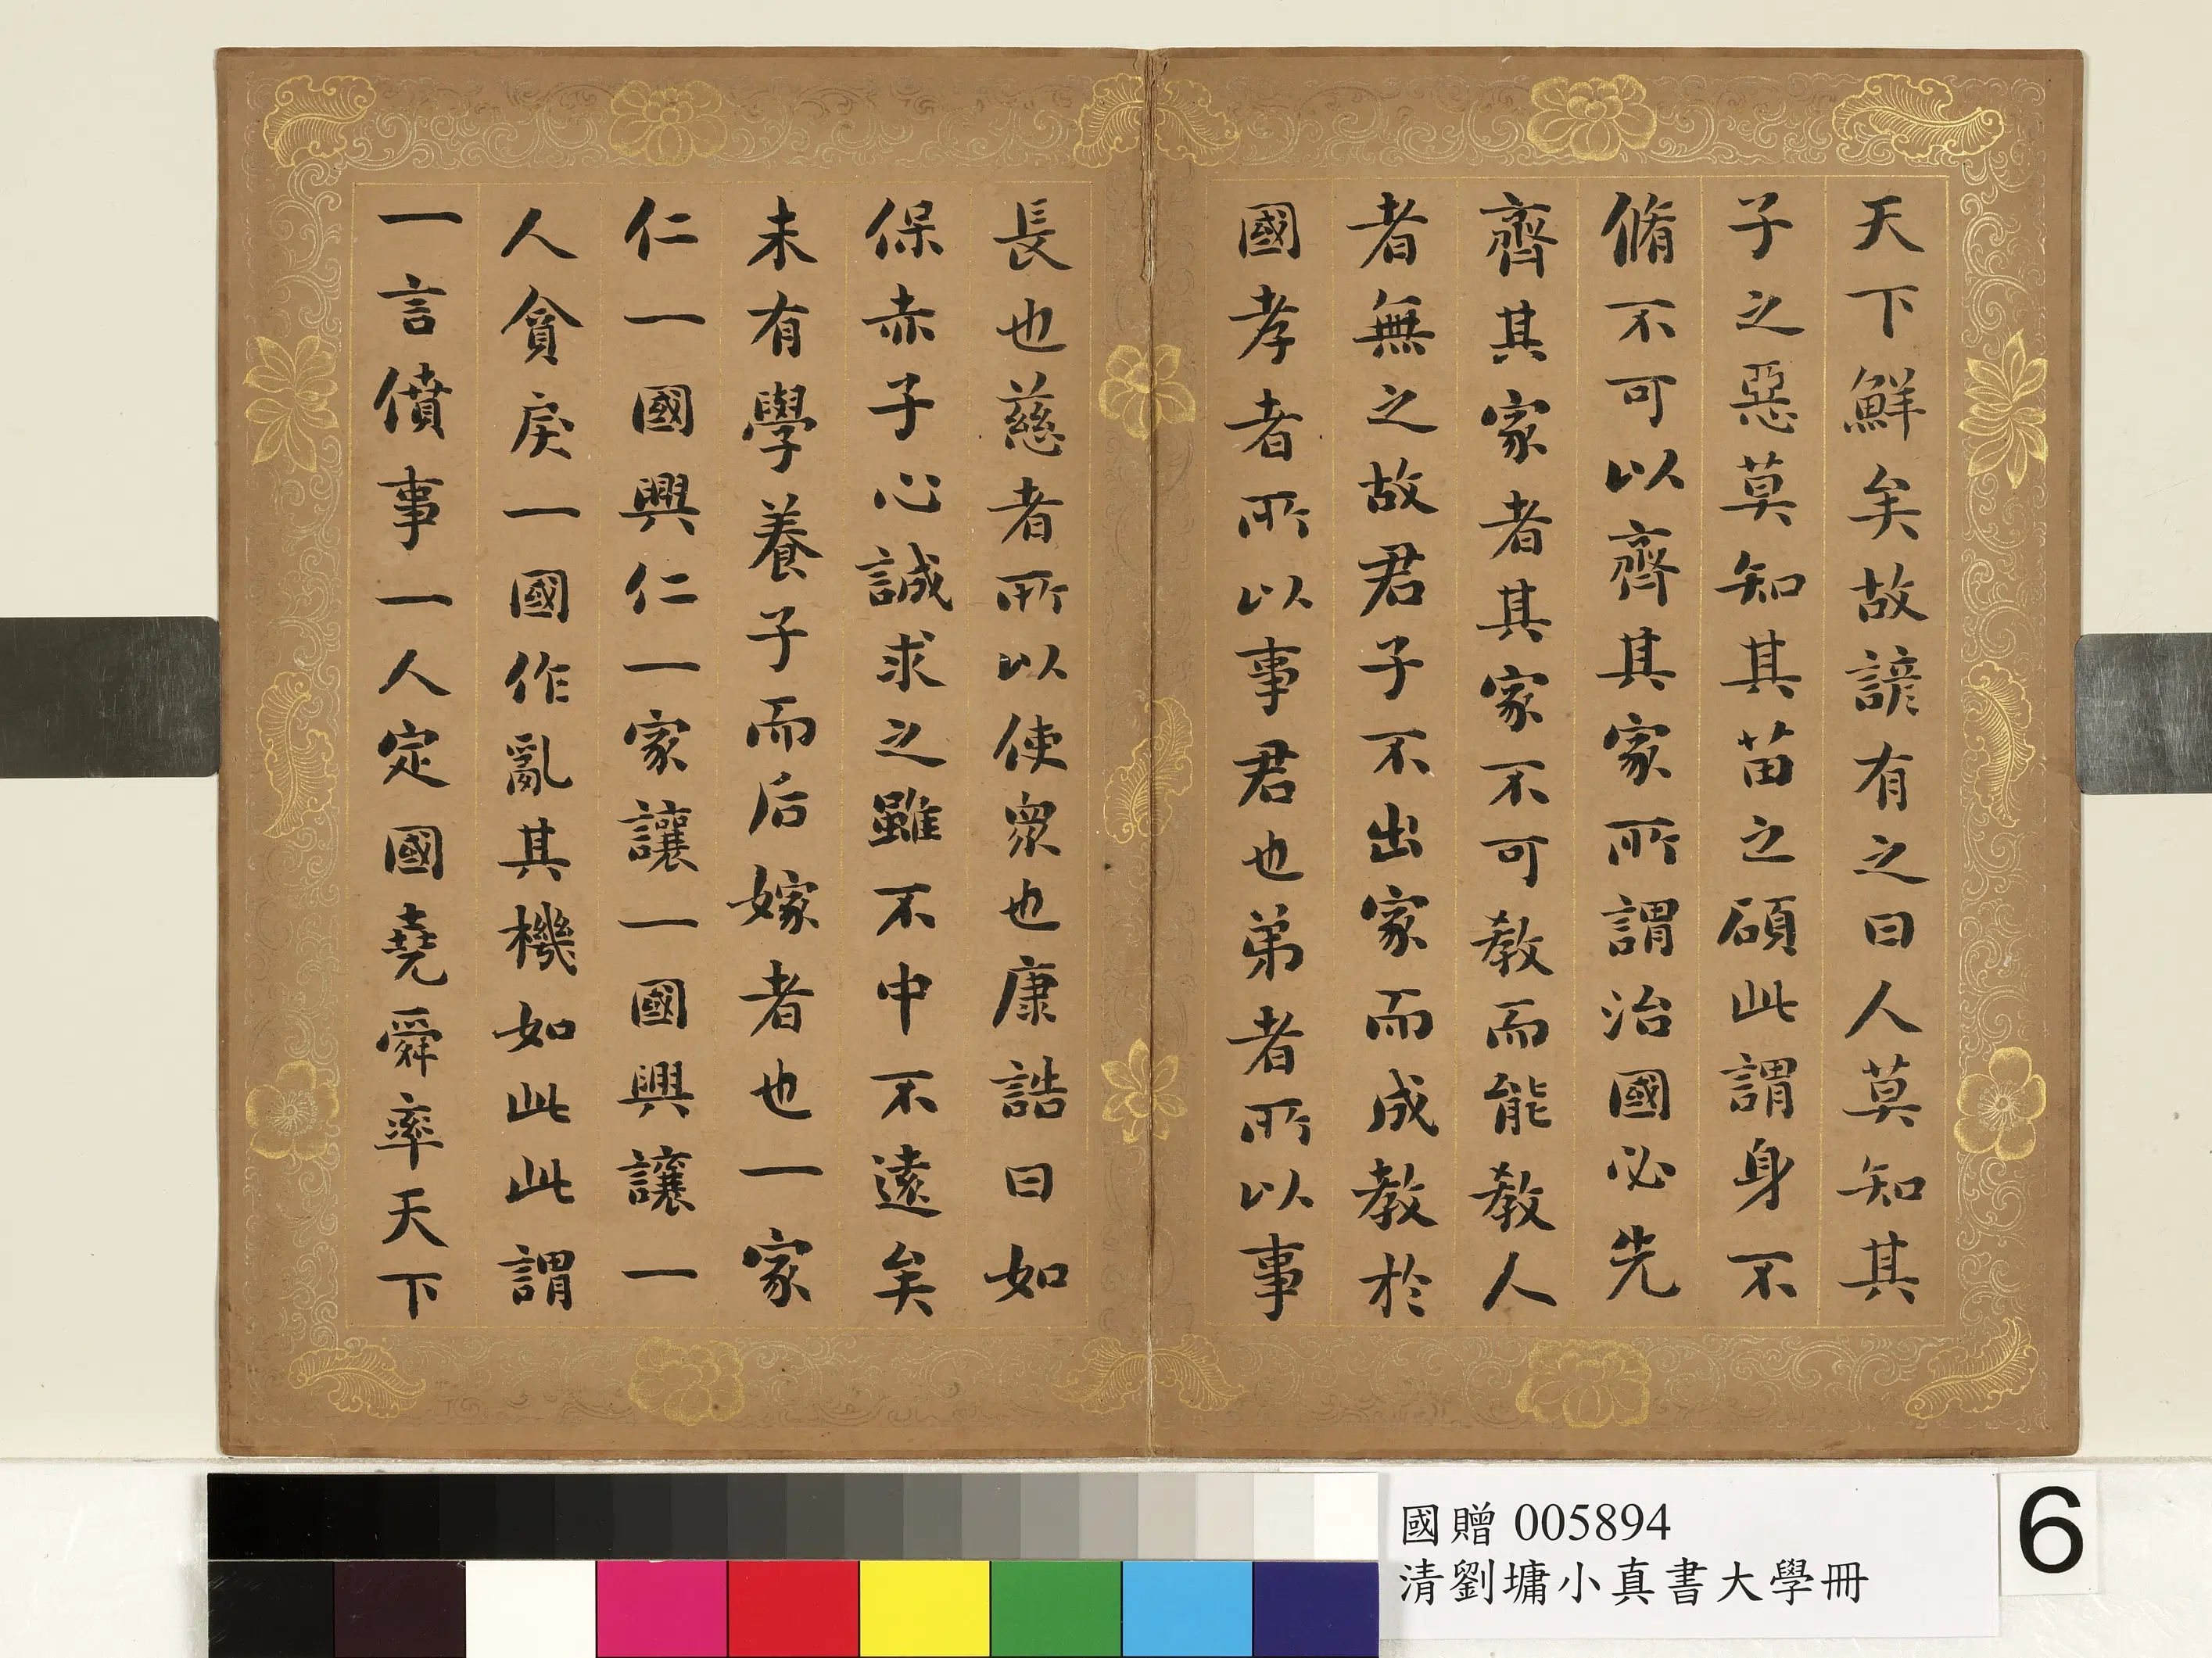 天下鮮矣故諺有之曰人莫知其
子之惡莫知其苗之碩此謂身不
脩不可以齊其家所謂治國必先
齊其家者其家不可教而能教人
者無之故君子不出家而成教於
國孝者所以事君也弟者所以事
長也慈者所以使眾也康誥曰如
保赤子心誠求之雖不中不遠矣
未有學養子而后嫁者也一家
仁一國興仁一家讓一國興讓一
人貪戾一國作亂其機如此此謂
一言僨事一人定國堯舜率天下
國贈 005894
清劉墉小真書大學冊
6